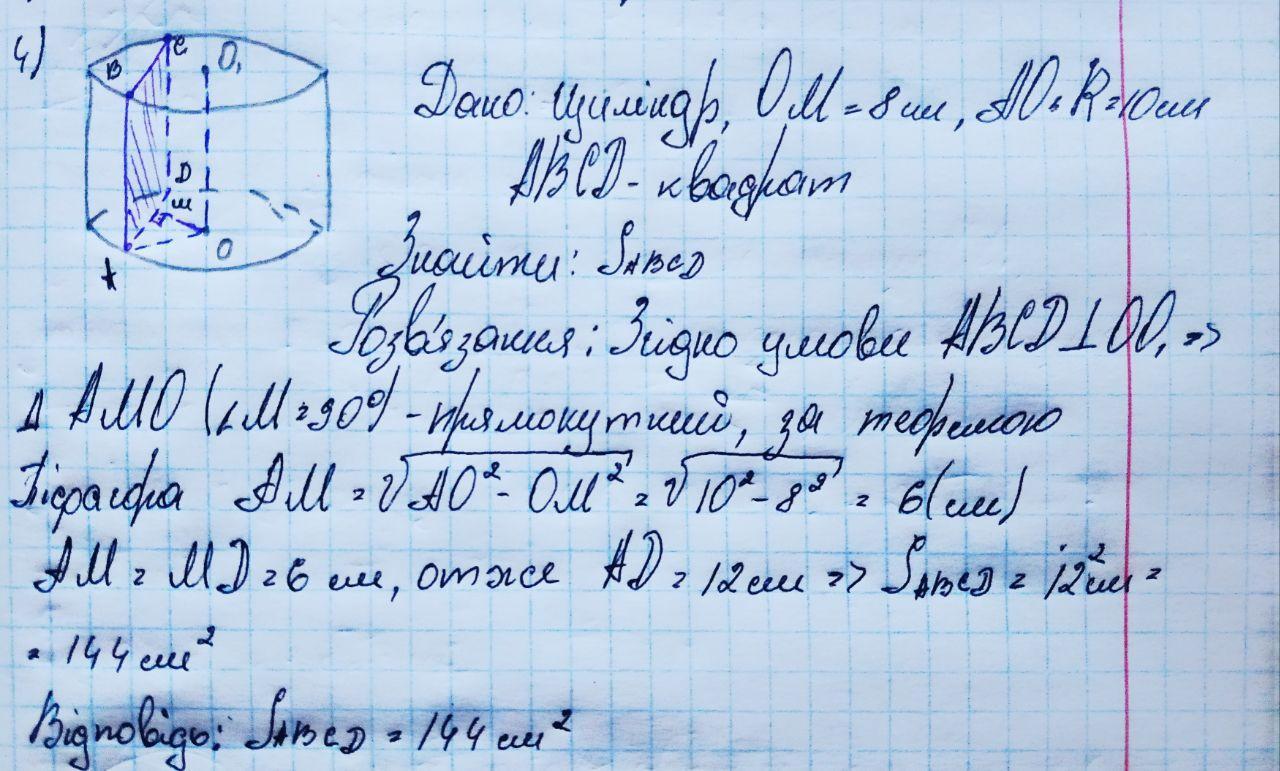 4)
B C O₁
D
M
O
A
Дано: Циліндр, OM = 8 см, AO = R = 10 см
ABCD - квадрат
Знайти: S_ABCD
Розв'язання: Згідно умови ABCD ⊥ OO₁ =>
Δ AMO (∠M = 90°) - прямокутний, за теоремою
Піфагора AM = √AO² - OM² = √10² - 8² = 6 (см)
AM = MD = 6 см, отже AD = 12 см => S_ABCD = 12² см =
= 144 см²
Відповідь: S_ABCD = 144 см²